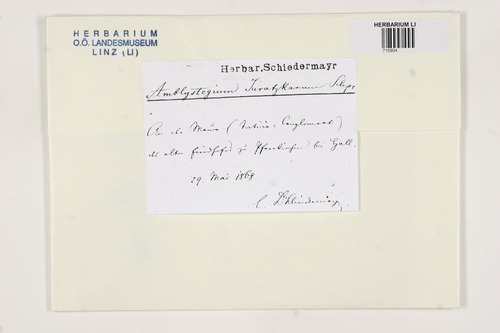 HERBARIUM
O.Ö. LANDESMUSEUM
LINZ (LI)
HERBARIUM LI
Herbar. Schiedermayr
Amblystegium Juratzkanum Schpr
An der Mauer ( Conglomerat )
alten Friedhofes zu Pfarrkirchen bei Hall.
29. Mai 1868
C. Schiedermayr